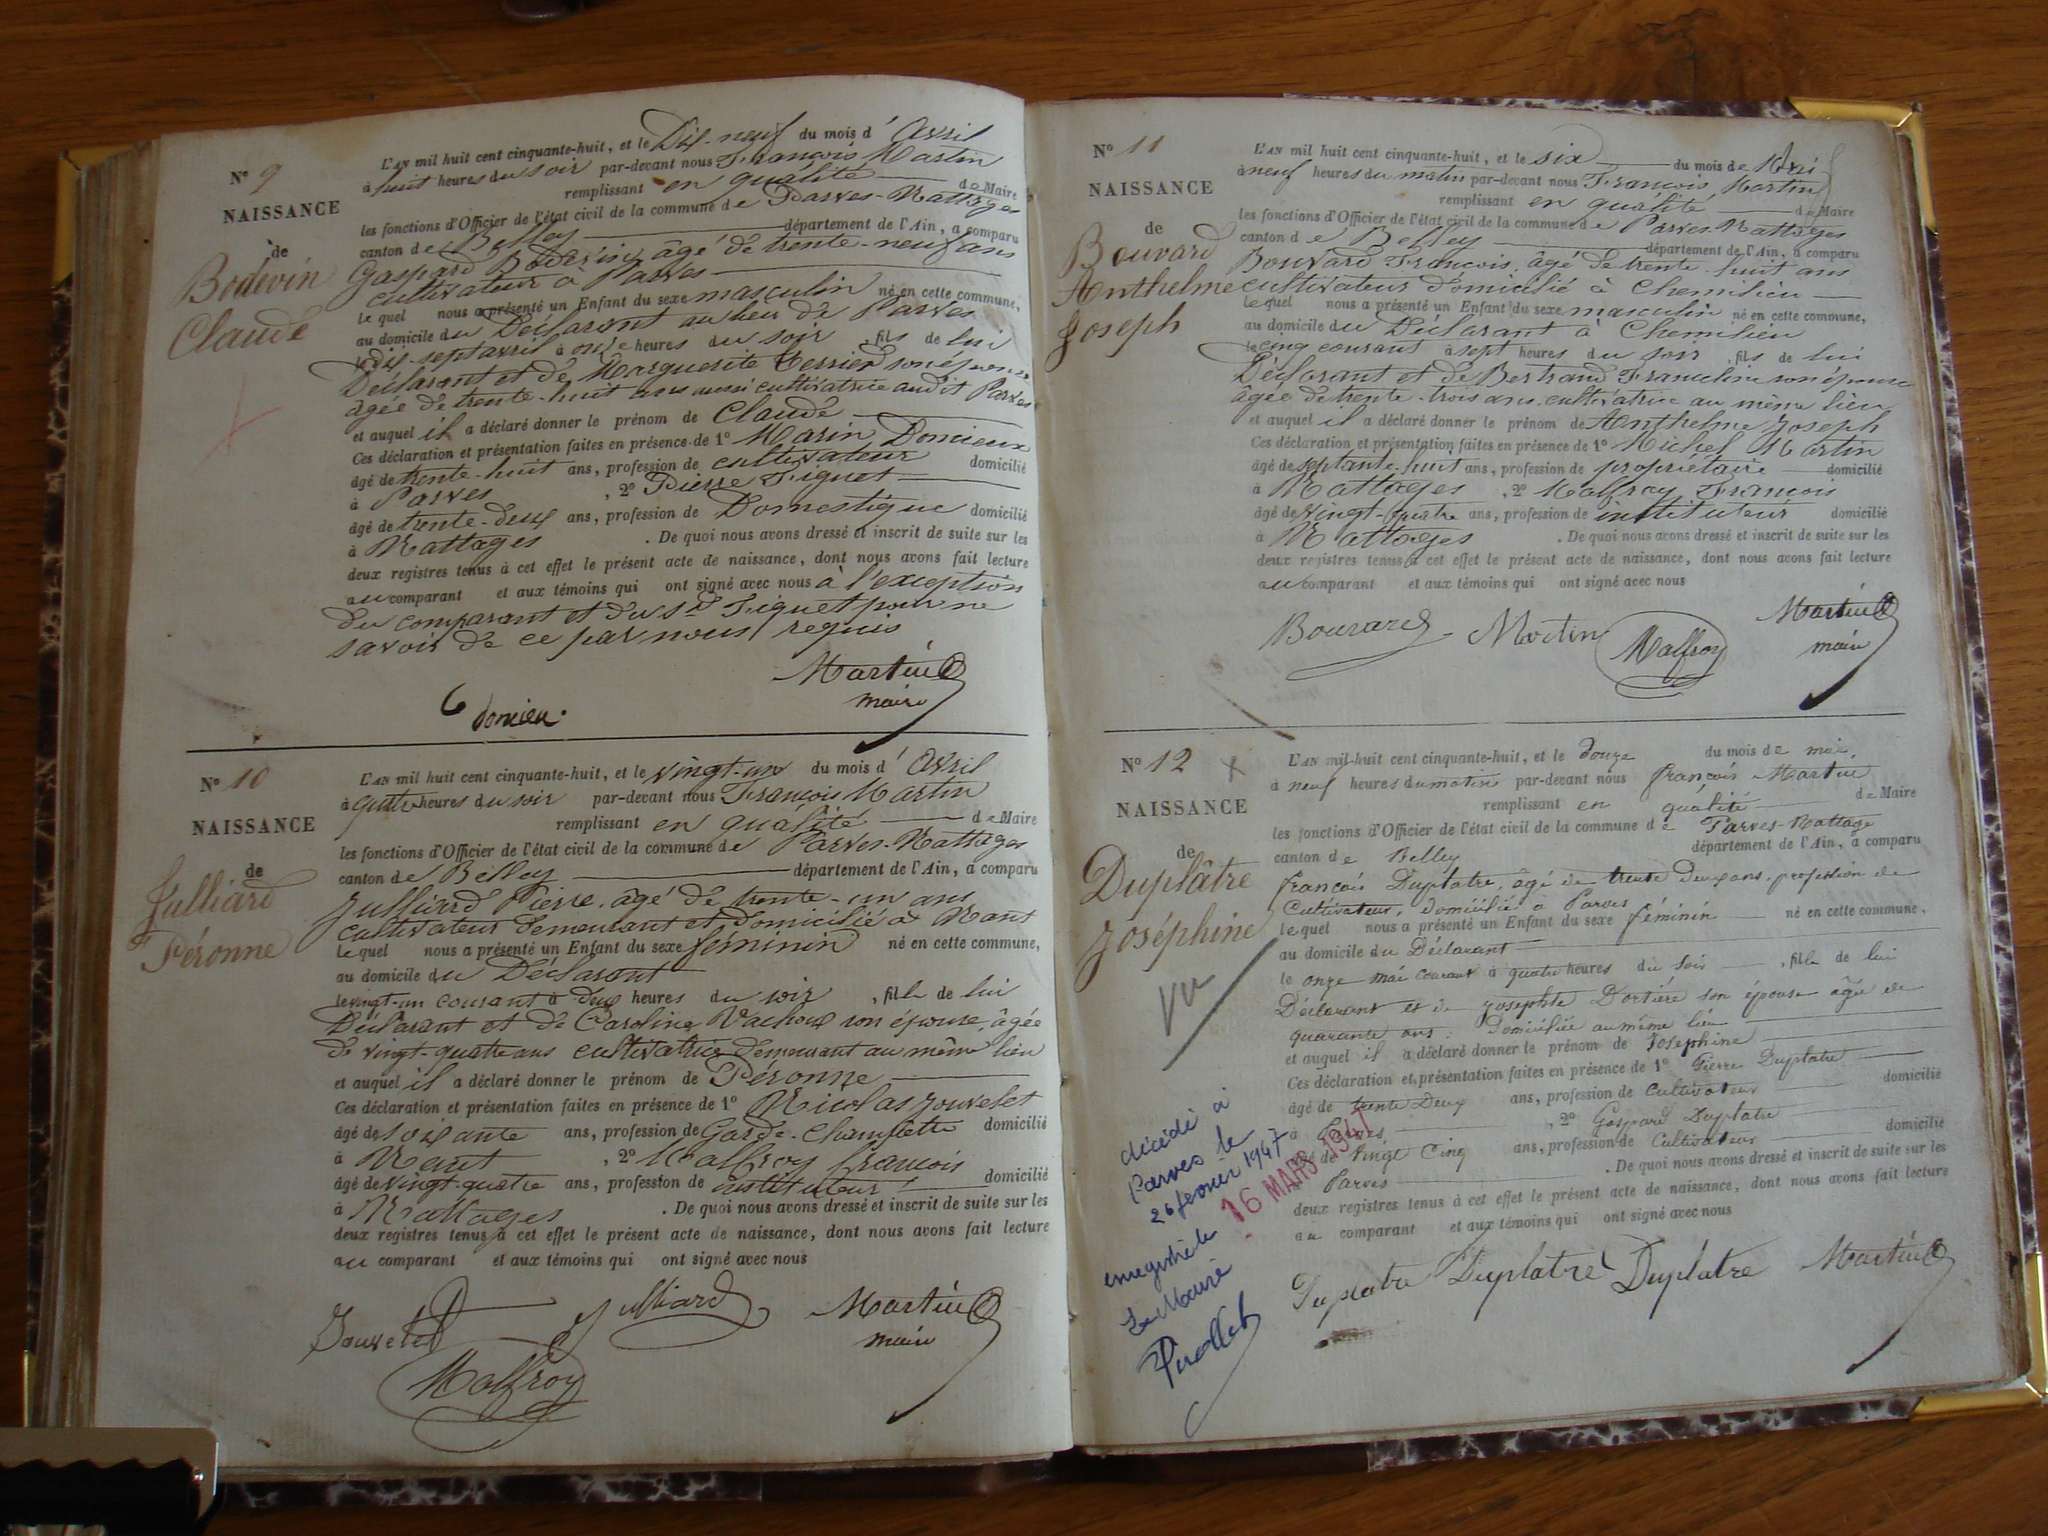 N° 9
NAISSANCE
de
Bodevin
Claude
L'AN mil huit cent cinquante-huit, et le Dix-neuf du mois d'Avril
à huit heures du soir par-devant nous François Martin
remplissant en qualité de Maire
les fonctions d'Officier de l'état civil de la commune de Parves-Nattages
canton de Belley département de l'Ain, a comparu
Gaspard Bodevin, âgé de trente-neuf ans
cultivateur à Parves
lequel nous a présenté un Enfant du sexe masculin né en cette commune,
au domicile du Déclarant au lieu de Parves
le dix-sept avril à onze heures du soir, fils de lui
Déclarant et de Marguerite Terrier son épouse
âgée de trente-huit ans aussi cultivatrice audit Parves
et auquel il a déclaré donner le prénom de Claude
Ces déclaration et présentation faites en présence de 1° Marin Domieux
âgé de trente-huit ans, profession de cultivateur domicilié
à Parves, 2° Pierre Tiguet
âgé de trente-deux ans, profession de Domestique domicilié
à Nattages. De quoi nous avons dressé et inscrit de suite sur les
deux registres tenus à cet effet le présent acte de naissance, dont nous avons fait lecture
au comparant et aux témoins qui ont signé avec nous à l'exception
du comparant et du Sr Tiguet pour ne
savoir de ce par nous requis
Martin
maire
domieu
N° 10
NAISSANCE
de
Julliard
Péronne
L'AN mil huit cent cinquante-huit, et le vingt-un du mois d'Avril
à quatre heures du soir par-devant nous François Martin
remplissant en qualité de Maire
les fonctions d'Officier de l'état civil de la commune de Parves-Nattages
canton de Belley département de l'Ain, a comparu
Julliard Pierre, âgé de trente-un ans
cultivateur demeurant et domicilié à Nant
lequel nous a présenté un Enfant du sexe féminin né en cette commune,
au domicile du Déclarant
le vingt-un courant à deux heures du soir, fille de lui
Déclarant et de Caroline Vachoux son épouse, âgée
de vingt-quatre ans cultivatrice demeurant au même lieu
et auquel il a déclaré donner le prénom de Péronne
Ces déclaration et présentation faites en présence de 1° Nicolas Jouvelet
âgé de soixante ans, profession de Garde-Champêtre domicilié
à Nant, 2° Malfroy françois
âgé de vingt-quatre ans, profession de instituteur domicilié
à Nattages. De quoi nous avons dressé et inscrit de suite sur les
deux registres tenus à cet effet le présent acte de naissance, dont nous avons fait lecture
au comparant et aux témoins qui ont signé avec nous
Jouvelet Julliard Martin
maire
Malfroy
N° 11
NAISSANCE
de
Bouvard
Anthelme
Joseph
L'AN mil huit cent cinquante-huit, et le six du mois de Mai
à neuf heures du matin par-devant nous François Martin
remplissant en qualité de Maire
les fonctions d'Officier de l'état civil de la commune de Parves-Nattages
canton de Belley département de l'Ain, a comparu
Bouvard François, âgé de trente-huit ans
cultivateur domicilié à Chemilieu
lequel nous a présenté un Enfant du sexe masculin né en cette commune,
au domicile du Déclarant à Chemilieu
le cinq courant à sept heures du soir, fils de lui
Déclarant et de Bertrand Francline son épouse
âgée de trente-trois ans cultivatrice au même lieu
et auquel il a déclaré donner le prénom de Anthelme Joseph
Ces déclaration et présentation faites en présence de 1° Michel Martin
âgé de septante-huit ans, profession de propriétaire domicilié
à Nattages, 2° Malfroy François
âgé de vingt-quatre ans, profession de instituteur domicilié
à Nattages. De quoi nous avons dressé et inscrit de suite sur les
deux registres tenus à cet effet le présent acte de naissance, dont nous avons fait lecture
au comparant et aux témoins qui ont signé avec nous
Bouvard Martin Malfroy Martin
maire
N° 12
NAISSANCE
de
Duplâtre
Joséphine
vu
L'AN mil-huit cent cinquante-huit, et le douze du mois de mai,
à neuf heures du matin par-devant nous françois Martin
remplissant en qualité de Maire
les fonctions d'Officier de l'état civil de la commune de Parves-Nattage
canton de Belley département de l'Ain, a comparu
françois Duplatre, âgé de trente deux ans, profession de
Cultivateur, domicilié à Parves
lequel nous a présenté un Enfant du sexe féminin né en cette commune,
au domicile du Déclarant
le onze mai courant à quatre heures du soir, fille de lui
Déclarant et de Josephte Dortière son épouse âgée de
quarante ans. Domiciliée au même lieu
et auquel il a déclaré donner le prénom de Josephine
Ces déclaration et présentation faites en présence de 1° Pierre Duplatre
âgé de trente Deux ans, profession de Cultivateur domicilié
à Parves, 2° Gaspard Duplatre
âgé de Vingt Cinq ans, profession de Cultivateur domicilié
à Parves. De quoi nous avons dressé et inscrit de suite sur les
deux registres tenus à cet effet le présent acte de naissance, dont nous avons fait lecture
au comparant et aux témoins qui ont signé avec nous
Duplatre Duplatre Duplatre Martin
décédé à
Parves le
26 février 1947
16 MARS 1947
enregistré le
Le Maire